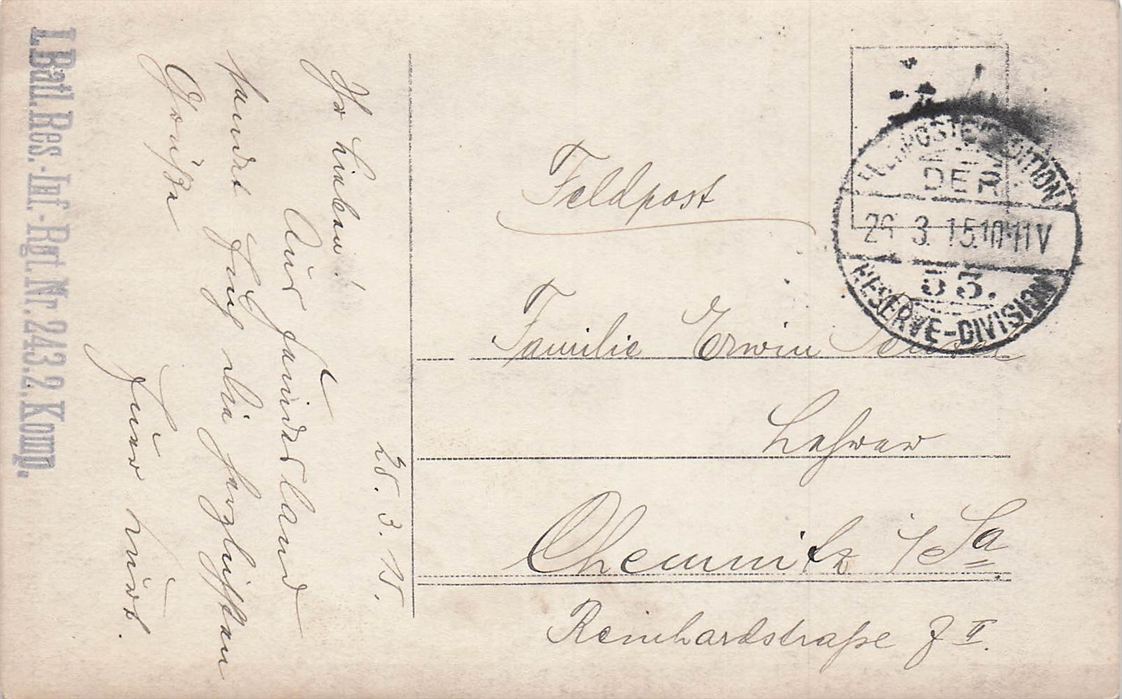 I.Batl.Res.-Inf.-Rgt.Nr.243.2.Komp.
25. 3. 15.
Ihr Lieben!
Aus Feindesland
sendet Euch die herzlichsten
Grüße
Euer Kurt.
FELDPOSTEXPEDITION
DER
3. 15.10-11V
53.
RESERVE-DIVISION
Feldpost
Familie Erwin
Lehrer
Chemnitz i/Sa
Reinhardstraße 7 II.